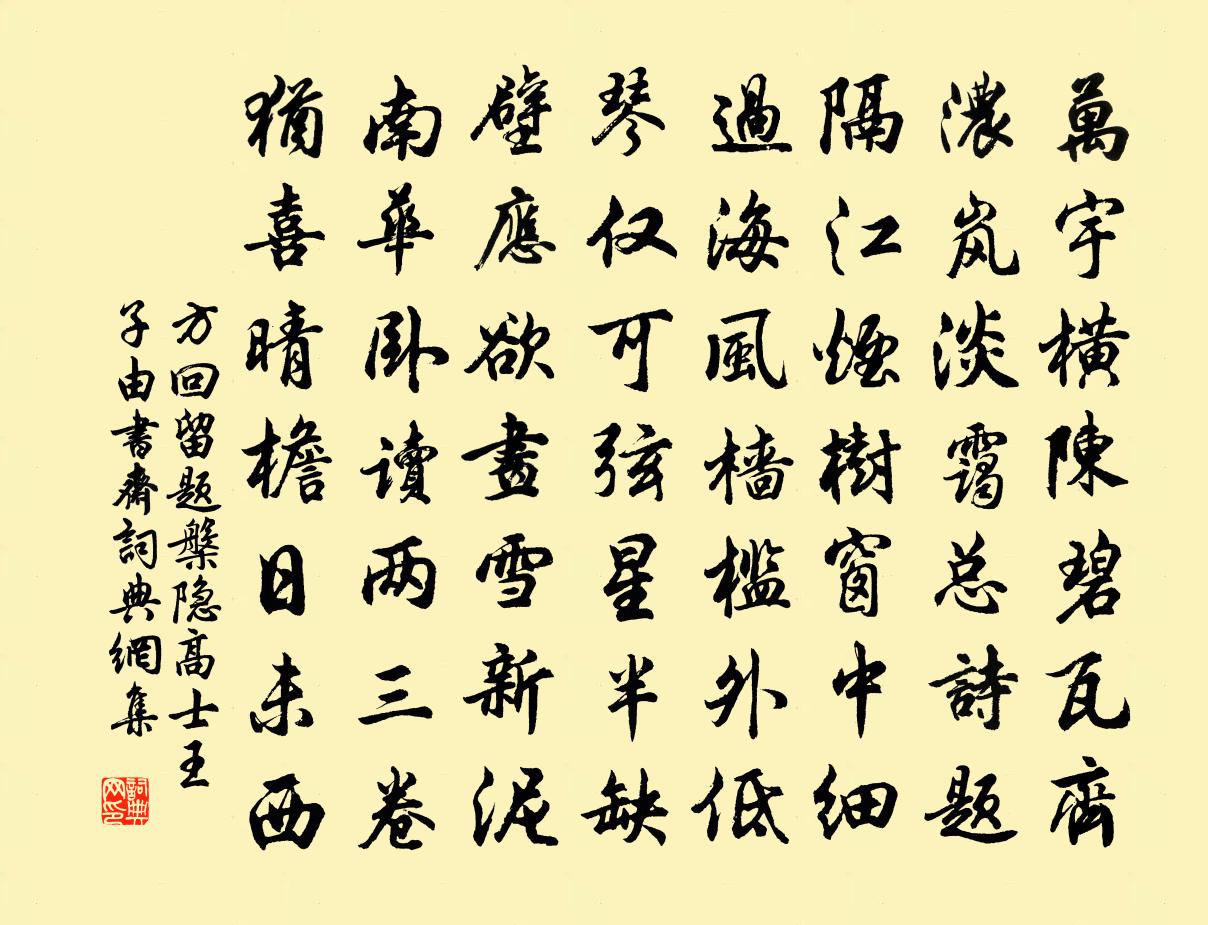 萬宇橫陳碧瓦齊
濃岚淡靄总詩题
隔江煙樹窗中细
過海風樯槛外低
琴仅可弦星半缺
壁應欲畫雪新泥
南華卧讀两三卷
猶喜晴檐日未西
方回留题槃隐高士王
子由書齋詞典網集
詞典
网印